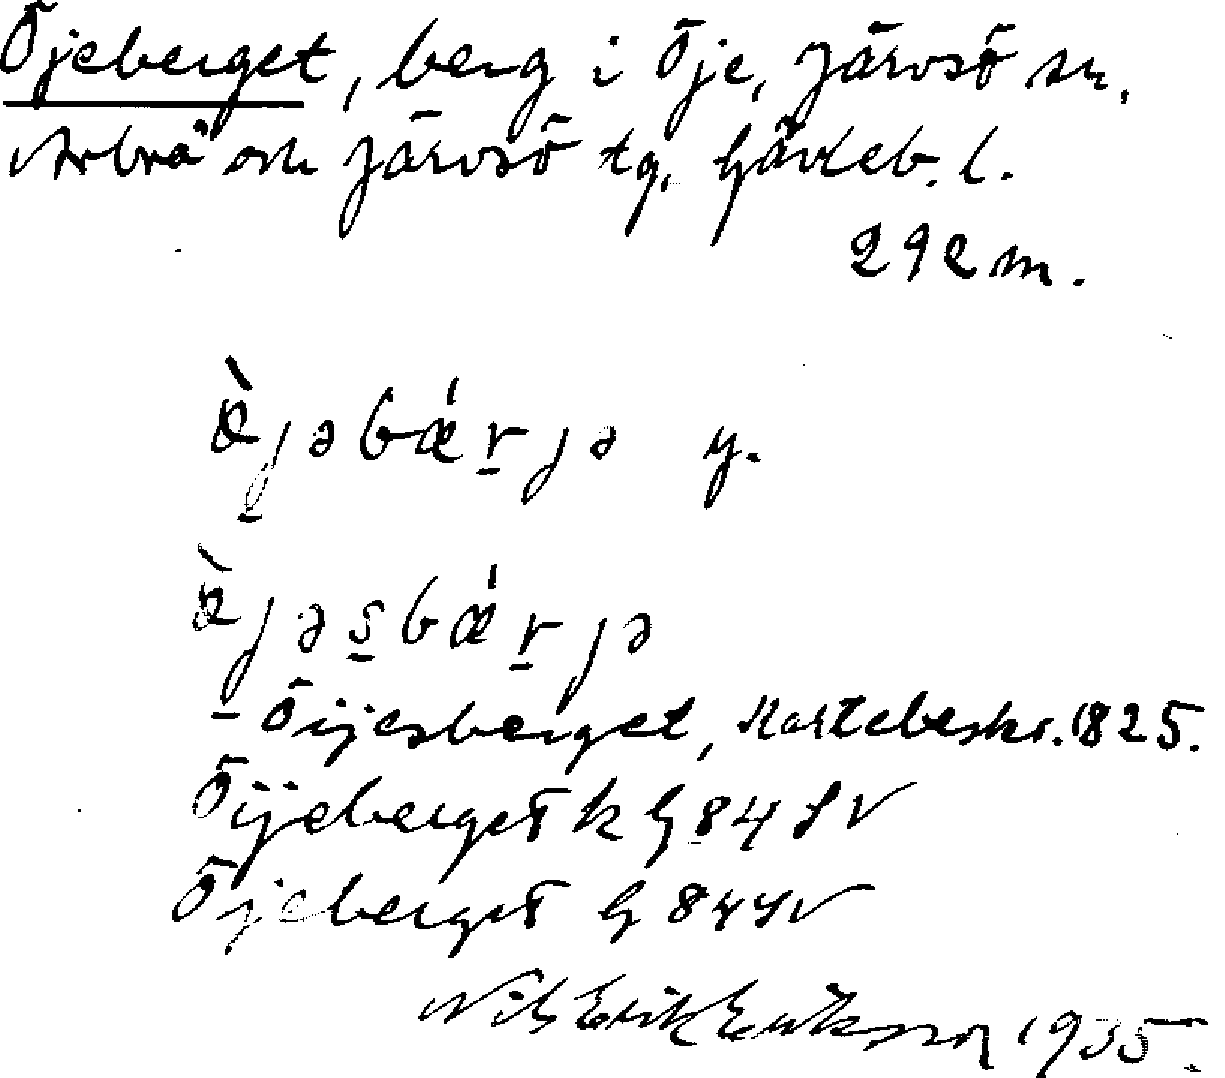 Öjeberget, berg i Öje, Järvsö sn.
Arbrå och Järvsö tg, Gävleb. l.
292 m.
œ̀jəbǽr̲jə y.
œ̀jəs̲bǽr̲jə
Öijesberget, Kartebeskr. 1825.
Öijeberget k G 84 SV
Öjeberget G 84 SV
Nils Erik Eriksson 1935.